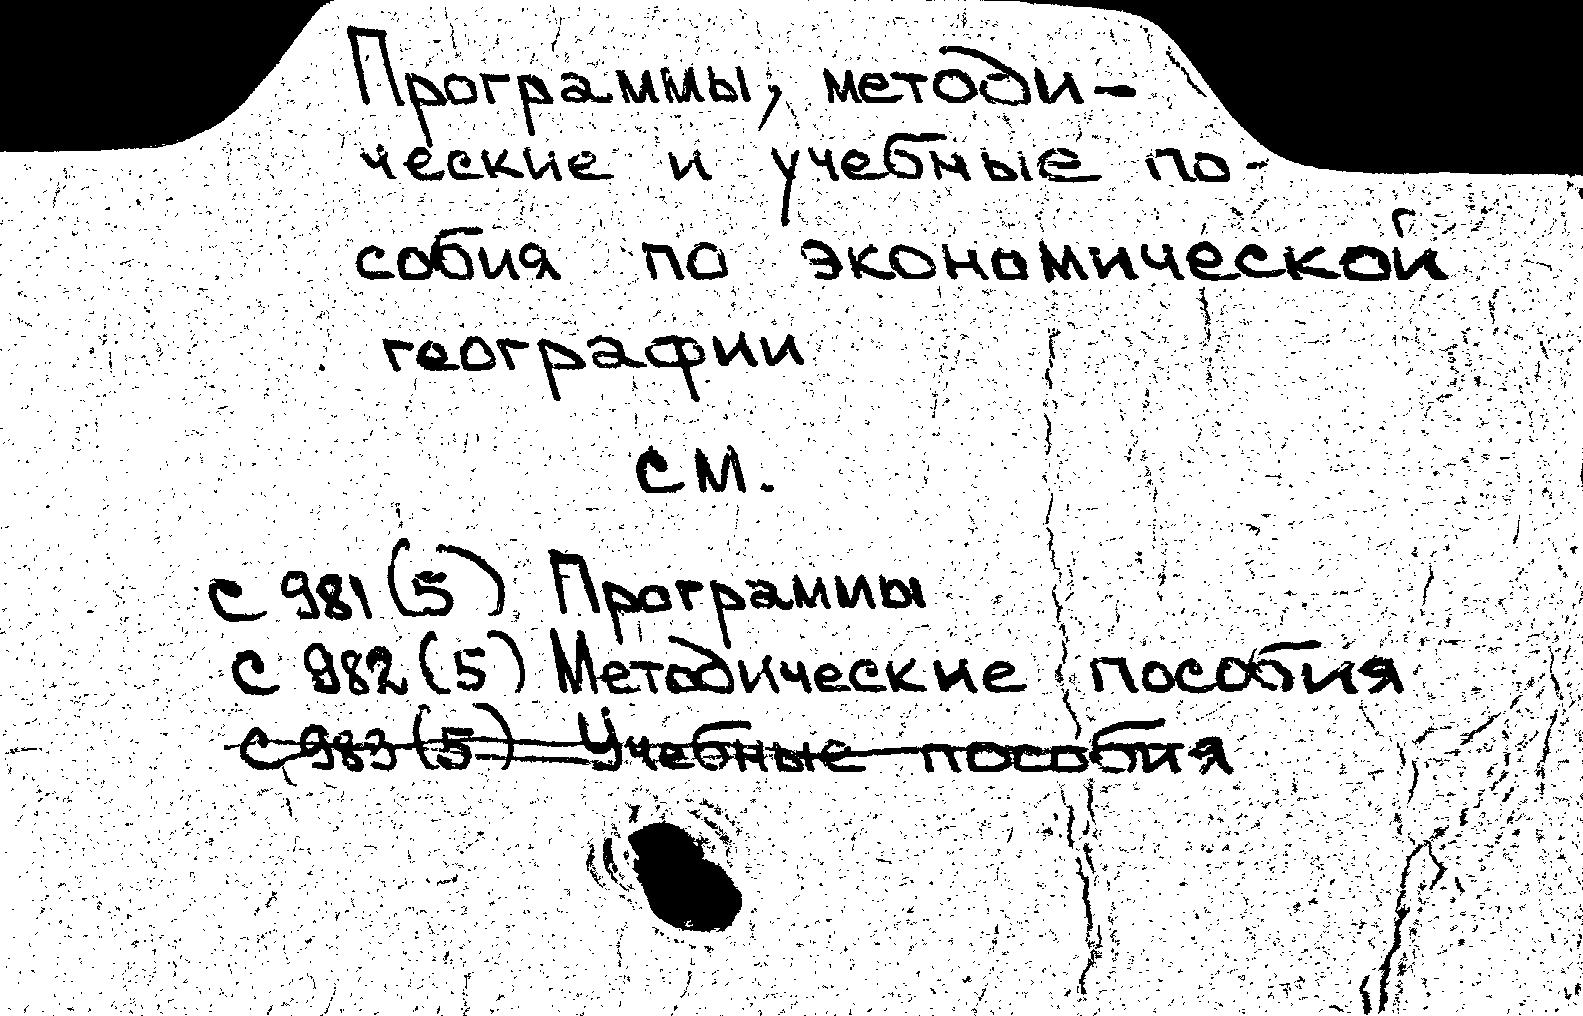 Программы, методи-
ческие и учебные по-
собия по экономической
географии
см.
С 981(5) Программы
С 982(5) Методические пособия
С 983(5) Учебные пособия